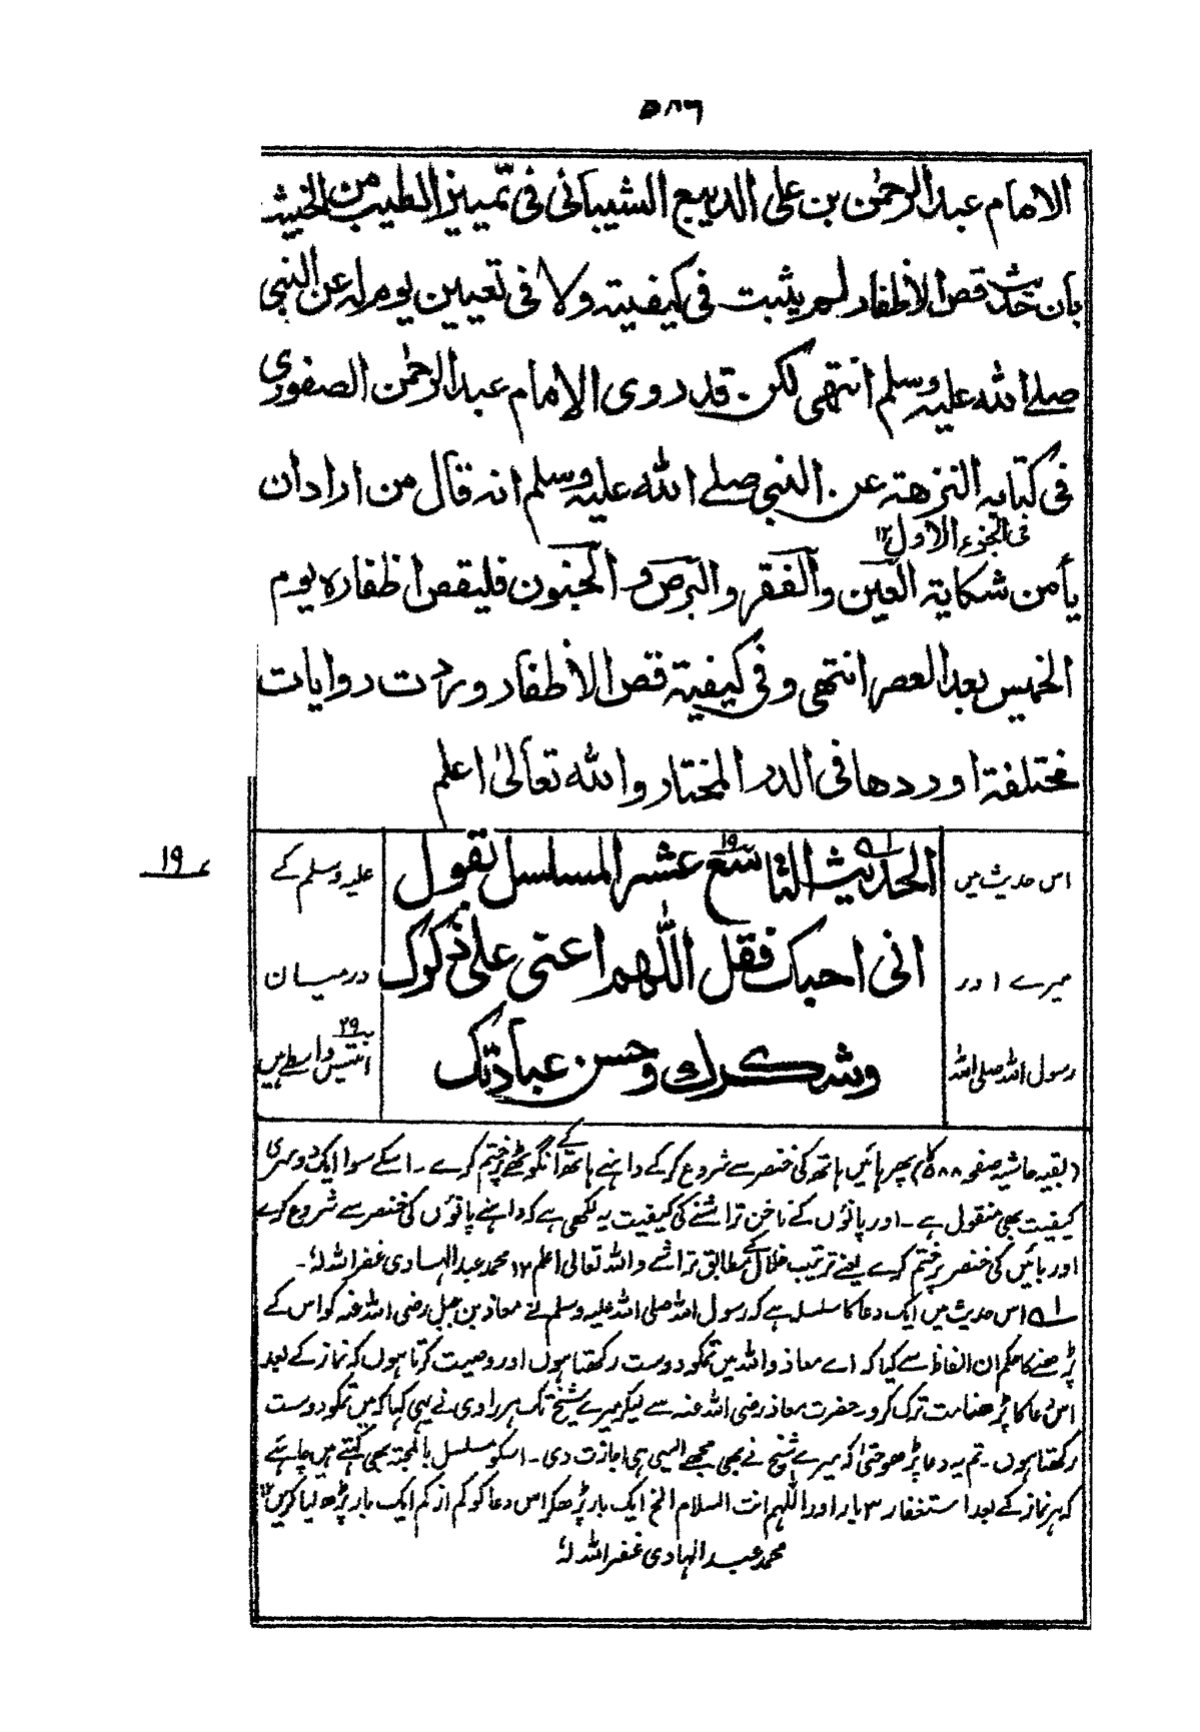 ۵۸۶
الامام عبد الرحمٰن بن علی الدیبع الشیبانی فی تمییز الطیب من الخبیث
بان حدیث قص الاظفار لم یثبت فی کیفیتہ ولا فی تعیین یوم لہ عن النبی
صلے اللہ علیہ وسلم انتھی لکن قد روی الامام عبد الرحمٰن الصفوری
فی کتابہ النزھۃ عن النبی صلے اللہ علیہ وسلم انہ قال من اراد ان
فی الجزء الاول ۱۲
یأمن شکایۃ العین والفقر والبرص والجنون فلیقص اظفارہ یوم
الخمیس بعد العصر انتھی وفی کیفیۃ قص الاظفار وردت روایات
مختلفۃ اوردھا فی الدر المختار واللہ تعالیٰ اعلم
الحدیث التاسع عشر المسلسل بقول
۱۹
انی احبک فقل اللّٰھم اعنی علیٰ ذکرک
وشکرک وحسن عبادتک
اس حدیث میں
میرے اور
رسول اللہ صلی اللہ
علیہ وسلم کے
درمیان
۲۹
انتیس واسطے ہیں
۱۹
(بقیہ حاشیہ صفحہ ۵۸۸ کا) پھر بائیں ہاتھ کی خنصر سے شروع کر کے داہنے ہاتھ کے انگوٹھے پر ختم کرے ۔ اسکے سوا ایک دوسری
کیفیت بھی منقول ہے ۔ اور پاؤں کے ناخن تراشنے کی کیفیت یہ لکھی ہے کہ داہنے پاؤں کی خنصر سے شروع کرے
اور بائیں کی خنصر پر ختم کرے یعنے ترتیب خلال کے مطابق تراشے واللہ تعالی اعلم ۱۲ محمد عبد الہادی غفر اللہ لہٗ ۔
لہ اس حدیث میں ایک دعا کا سلسلہ ہے کہ رسول اللہ صلی اللہ علیہ وسلم نے معاذ بن جبل رضی اللہ عنہ کو اس کے
پڑھنے کا حکم ان الفاظ سے کیا کہ اے معاذ واللہ میں تمکو دوست رکھتا ہوں اور وصیت کرتا ہوں کہ نماز کے بعد
اس دعا کا پڑھنا مت ترک کرو ۔ حضرت معاذ رضی اللہ عنہ سے لیکر میرے شیخ تک ہر راوی نے یہی کہا کہ میں تمکو دوست
رکھتا ہوں ۔ تم یہ دعا پڑھو حتیٰ کہ میرے شیخ نے بھی مجھے ایسی ہی اجازت دی ۔ اسکو مسلسل بالمحبۃ بھی کہتے ہیں چاہئے
کہ ہر نماز کے بعد استغفار ۳ بار اور اللّٰہم انت السلام الخ ایک بار پڑھکر اس دعا کو کم از کم ایک بار پڑھ لیا کریں ۱۲
محمد عبد الہادی غفر اللہ لہٗ